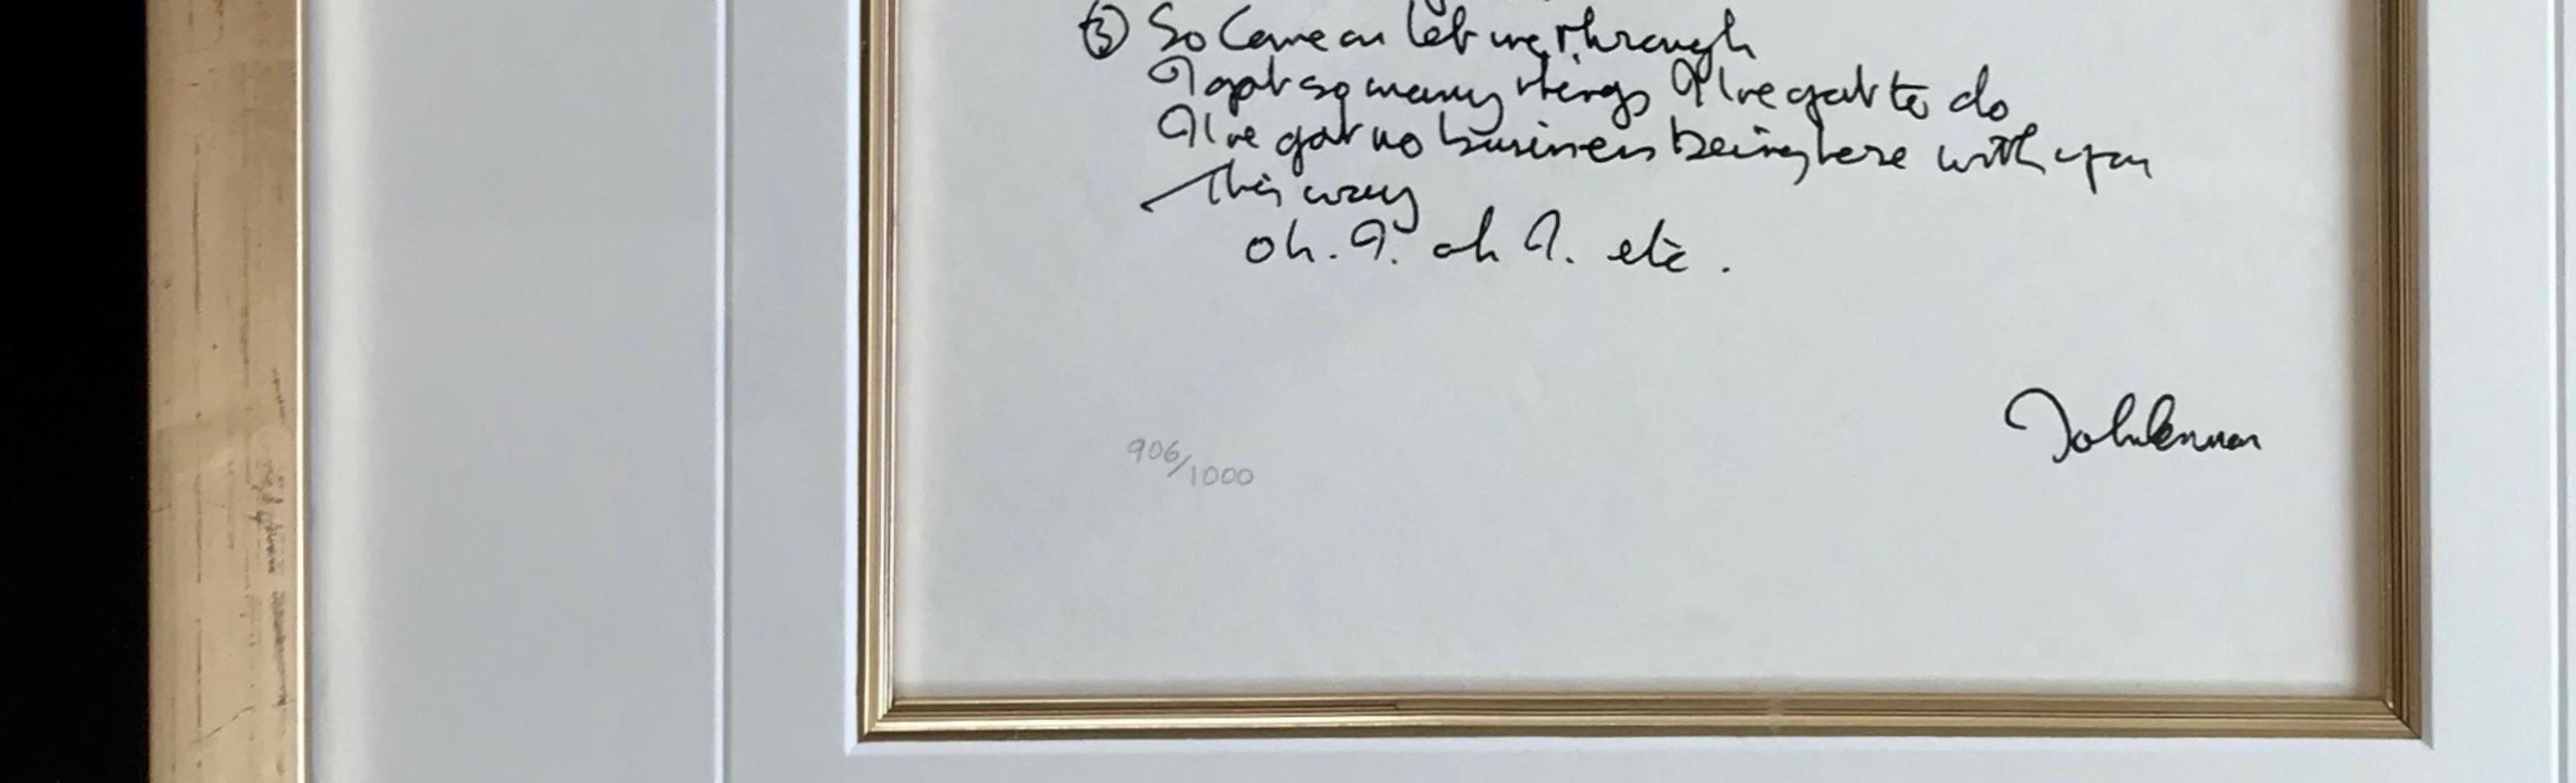 ③ So Come on let me through
I got so many things I I've got to do
I've got no business being here with you
this way
oh. I. oh I. etc.
John Lennon
906/1000